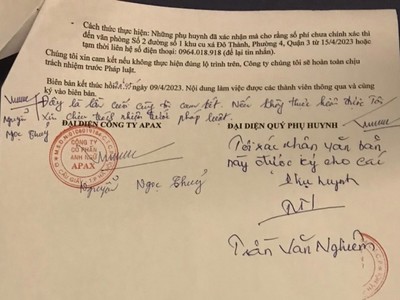 - Cách thức thực hiện: Những phụ huynh đã xác nhận mà cho rằng số phí chưa chính xác thì
đến văn phòng Số 2 đường số 1 khu cư xá Đô Thành, Phường 4, Quận 3 từ 15/4/2023 hoặc
tạm thời liên hệ số điện thoại: 0964.018.918 (để lại tin nhắn).
Chúng tôi xin cam kết nếu không thực hiện đúng lộ trình trên, Công ty chúng tôi sẽ hoàn toàn chịu
trách nhiệm trước Pháp luật.
Biên bản kết thúc hồi ngày 09/4/2023. Nội dung làm việc được các thành viên thông qua và cùng
ký vào biên bản.
Đây là lần cuối cùng tôi cam kết. Nếu không thực hiện được Tôi
Nguyễn xin chịu trách nhiệm trước pháp luật.
Ngọc Thuỷ
ĐẠI DIỆN CÔNG TY APAX
ĐẠI DIỆN QUÝ PHỤ HUYNH
CÔNG TY
CỔ PHẦN
ANH NGỮ
APAX
CẦU GIẤY
Nguyễn Ngọc Thuỷ
Tôi xác nhận văn bản
này được ký cho các
phụ huynh
Trần Văn Nghiêm